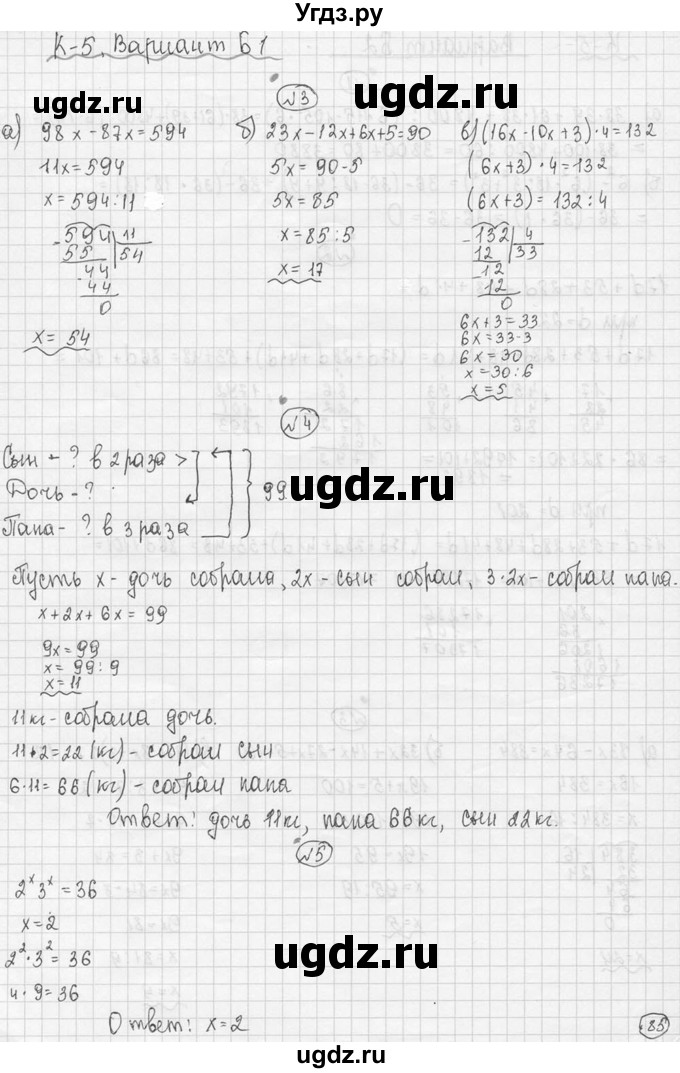 Угдз.ру
К-5. Вариант Б1
№3
а) 98x - 87x = 594
11x = 594
x = 594 : 11
594 | 11
55 | 54
44
44
0
x = 54
б) 23x - 12x + 6x + 5 = 90
5x = 90 - 5
5x = 85
x = 85 : 5
x = 17
в) (16x - 10x + 3) · 4 = 132
(6x + 3) · 4 = 132
(6x + 3) = 132 : 4
132 | 4
12 | 33
12
12
0
6x + 3 = 33
6x = 33 - 3
6x = 30
x = 30 : 6
x = 5
ugdz.ru
ugdz.ru
№4
Сын - ? в 2 раза >
Дочь - ?
Папа - ? в 3 раза
99
ugdz.ru
Пусть x - дочь собрала, 2x - сын собрал, 3·2x - собрал папа.
x + 2x + 6x = 99
9x = 99
x = 99 : 9
x = 11
ugdz.ru
ugdz.ru
11 кг - собрала дочь.
11+2=22 (кг) - собрал сын
6·11= 66 (кг) - собрал папа
Ответ: дочь 11кг, папа 66кг, сын 22кг.
ugdz.ru
№5
2ˣ 3ˣ = 36
x = 2
2² · 3² = 36
4 · 9 = 36
Ответ: x = 2
ugdz.ru
85
ugdz.ru